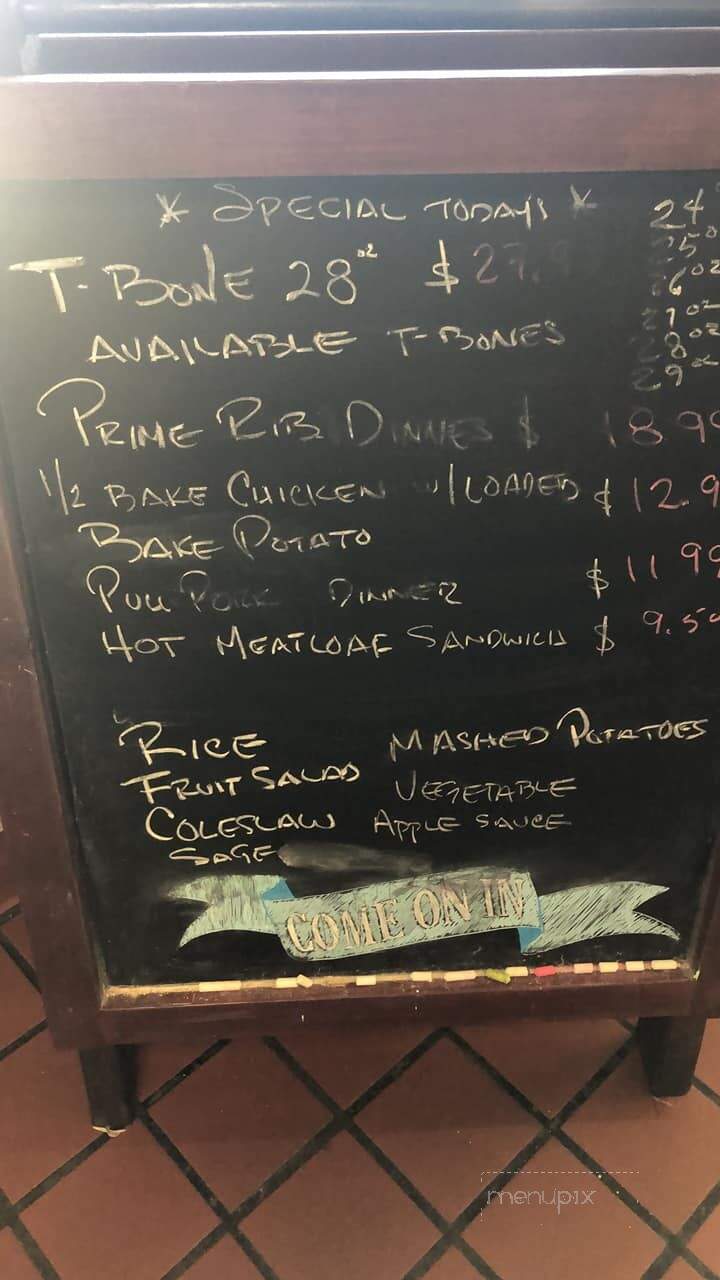 * SPECIAL TODAYS *
T-BONE 28oz $27.9
AVAILABLE T-BONES
24
25o
26oz
27oz
28oz
29oz
PRIME RIB DINNER $ 18.99
1/2 BAKE CHICKEN W/LOADED $ 12.9
BAKE POTATO
PULL PORK DINNER $ 11 99
HOT MEATLOAF SANDWICH $ 9.50
RICE MASHED POTATOES
FRUIT SALAD VEGETABLE
COLESLAW APPLE SAUCE
SAGE
COME ON IN
menupix